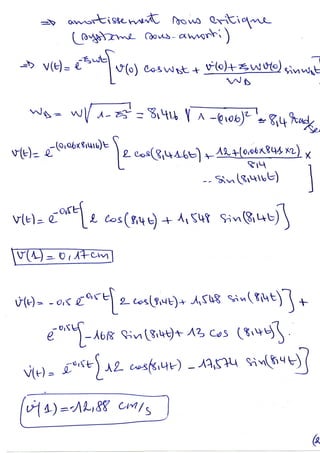 ⇒ amortissement sous critique
(système sous-amorti)
⇒ v(t) = e^{-ξwt} [ v(0) cos w_D t + (v̇(0) + ξ w v(0)) / w_D sin w_D t
w_D = w √(1-ξ²) = 8,416 √(1-(0,06)²) ≈ 8,4 rad/sec
v(t) = e^{-(0,06×8,416)t} [ 2 cos(8,416t) + (12+(0,06×8,41×2)) / 8,4 ×
.. sin(8,416t) ]
v(t) = e^{-0,5t} [ 2 cos(8,4t) + 1,548 sin(8,4t) ]
v(1) = 0,17 cm
v̇(t) = -0,5 e^{-0,5t} [ 2 cos(8,4t) + 1,548 sin(8,4t) ] +
e^{-0,5t} [ -16,8 sin(8,4t) + 13 cos (8,4t) ].
v̇(t) = e^{-0,5t} [ 12 cos(8,4t) - 17,574 sin(8,4t) ]
v̇(1) = -12,88 cm/s
(2